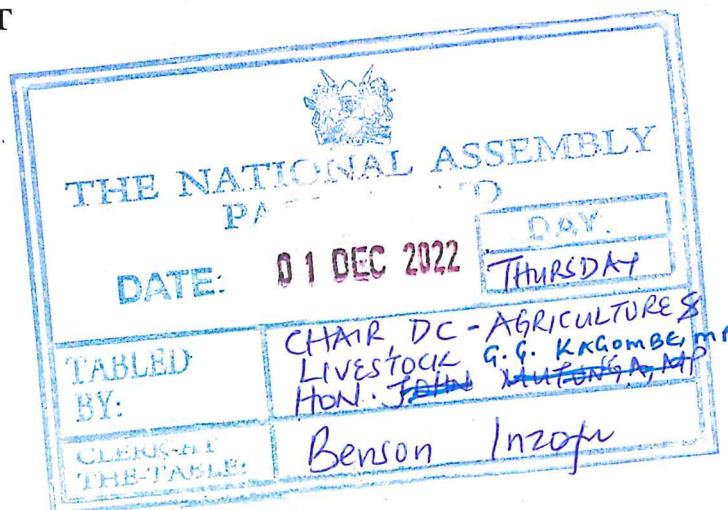 T
THE NATIONAL ASSEMBLY
DATE: 01 DEC 2022
DAY.
THURSDAY
TABLED
BY:
CHAIR, DC - AGRICULTURE &
LIVESTOCK G. G. KAGOMBE, MP
HON. JOHN MUTUNGA, MP
CLERK-AT
THE-TABLE:
Benson